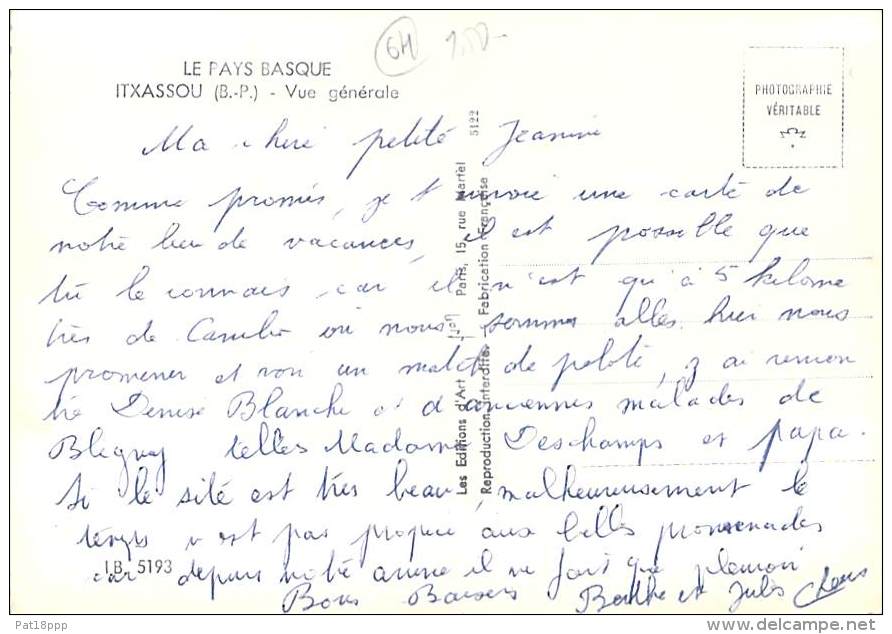 64 1.50-
LE PAYS BASQUE
ITXASSOU (B.-P.) - Vue générale
PHOTOGRAPHIE
VÉRITABLE
5122
Les Editions d'Art "Jof" Paris, 15, rue Martel
Reproduction Interdite - Fabrication Française
Ma chere petite Jeanine
Comme promis, je t'envoie une carte de
notre lieu de vacances, il est possible que
tu le connais car il n'est qu'à 5 kilomè
tres de Cambo où nous sommes allés hier nous
promener et voir un match de pelote, j'ai rencon
tré Denise Blanche et d'anciennes malades de
Bligny telles Madame Deschamps et papa.
Si le site est très beau, malheureusement le
temps n'est pas propice aux belles promenades
car depuis notre arrivée il ne fait que pleuvoir
I.B. 5193
Bons Baisers Berthe et Jules
Pat18ppp
www.delcampe.net